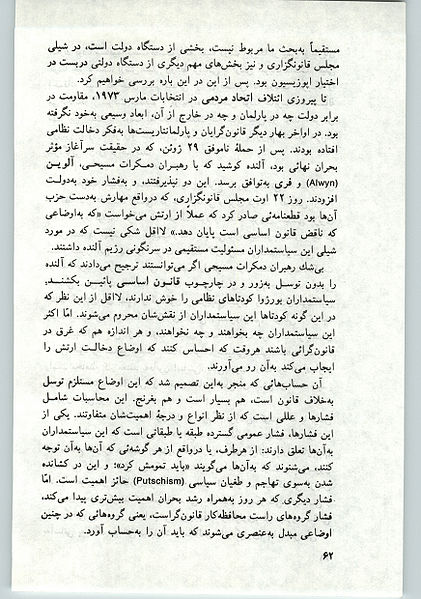 مستقیماً به‌بحث ما مربوط نیست، بخشی از دستگاه دولت است، در شیلی
مجلس قانونگزاری و نیز بخش‌های مهم دیگری از دستگاه دولتی دربست در
اختیار اپوزیسیون بود. پس از این در این باره بررسی خواهیم کرد.
تا پیروزی ائتلاف اتحاد مردمی در انتخابات مارس ۱۹۷۳، مقاومت در
برابر دولت چه در پارلمان و چه در خارج از آن، ابعاد وسیعی به‌خود نگرفته
بود. در اواخر بهار دیگر قانون‌گرایان و پارلمانتاریست‌ها به‌فکر دخالت نظامی
افتاده بودند. پس از حملهٔ ناموفق ۲۹ ژوئن، که در حقیقت سرآغاز مؤثر
بحران نهائی بود، آلنده کوشید که با رهبران دمکرات مسیحی، آلوین
(Alwyn) و فری به‌توافق برسد. این دو نپذیرفتند، و به‌فشار خود به‌دولت
افزودند. روز ۲۲ اوت مجلس قانونگزاری، که درواقع مهارش به‌دست حزب
آن‌ها بود قطعنامه‌ئی صادر کرد که عملاً از ارتش می‌خواست «که به‌اوضاعی
که ناقض قانون اساسی است پایان دهد.» لااقل شکی نیست که در مورد
شیلی این سیاستمداران مسئولیت مستقیمی در سرنگونی رژیم آلنده داشتند.
بی‌شک رهبران دمکرات مسیحی اگر می‌توانستند ترجیح می‌دادند که آلنده
را بدون توسل به‌زور و در چارچوب قانون اساسی پائین بکشند.
سیاستمداران بورژوا کودتاهای نظامی را خوش ندارند، لااقل از این نظر که
در این گونه کودتاها این سیاستمداران از نقش‌شان محروم می‌شوند. امّا اکثر
این سیاستمداران چه بخواهند و چه نخواهند، و هر اندازه هم که غرق در
قانون‌گرائی باشند هروقت که احساس کنند که اوضاع دخالت ارتش را
ایجاب می‌کند به‌آن رو می‌آورند.
آن حساب‌هائی که منجر به‌این تصمیم شد که این اوضاع مستلزم توسل
به‌خلاف قانون است، هم بسیار است و هم بغرنج. این محاسبات شامل
فشارها و عللی است که از نظر انواع و درجهٔ اهمیت‌شان متفاوتند. یکی از
این فشارها، فشار عمومی گسترده طبقه یا طبقاتی است که این سیاستمداران
به‌آن‌ها تعلق دارند: از هرطرف، یا درواقع از هر گوشه‌ئی که آن‌ها به‌آن توجه
کنند، می‌شنوند که به‌آن‌ها می‌گویند «باید تمومش کرد»؛ و این در کشانده
شدن به‌سوی تهاجم و طغیان سیاسی (Putschism) حائز اهمیت است. امّا
فشار دیگری که هر روز به‌همراه رشد بحران اهمیت بیش‌تری پیدا می‌کند،
فشار گروه‌های راست محافظه‌کار قانون‌گراست، یعنی گروه‌هائی که در چنین
اوضاعی مبدل به‌عنصری می‌شوند که باید آن را به‌حساب آورد.
۶۲